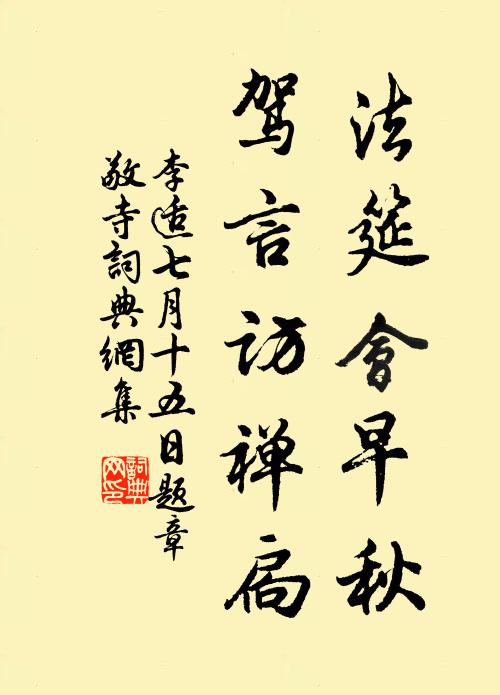 法筵會早秋
驾言访禅扃
李适七月十五日题章
敬寺詞典網集
詞典
网印